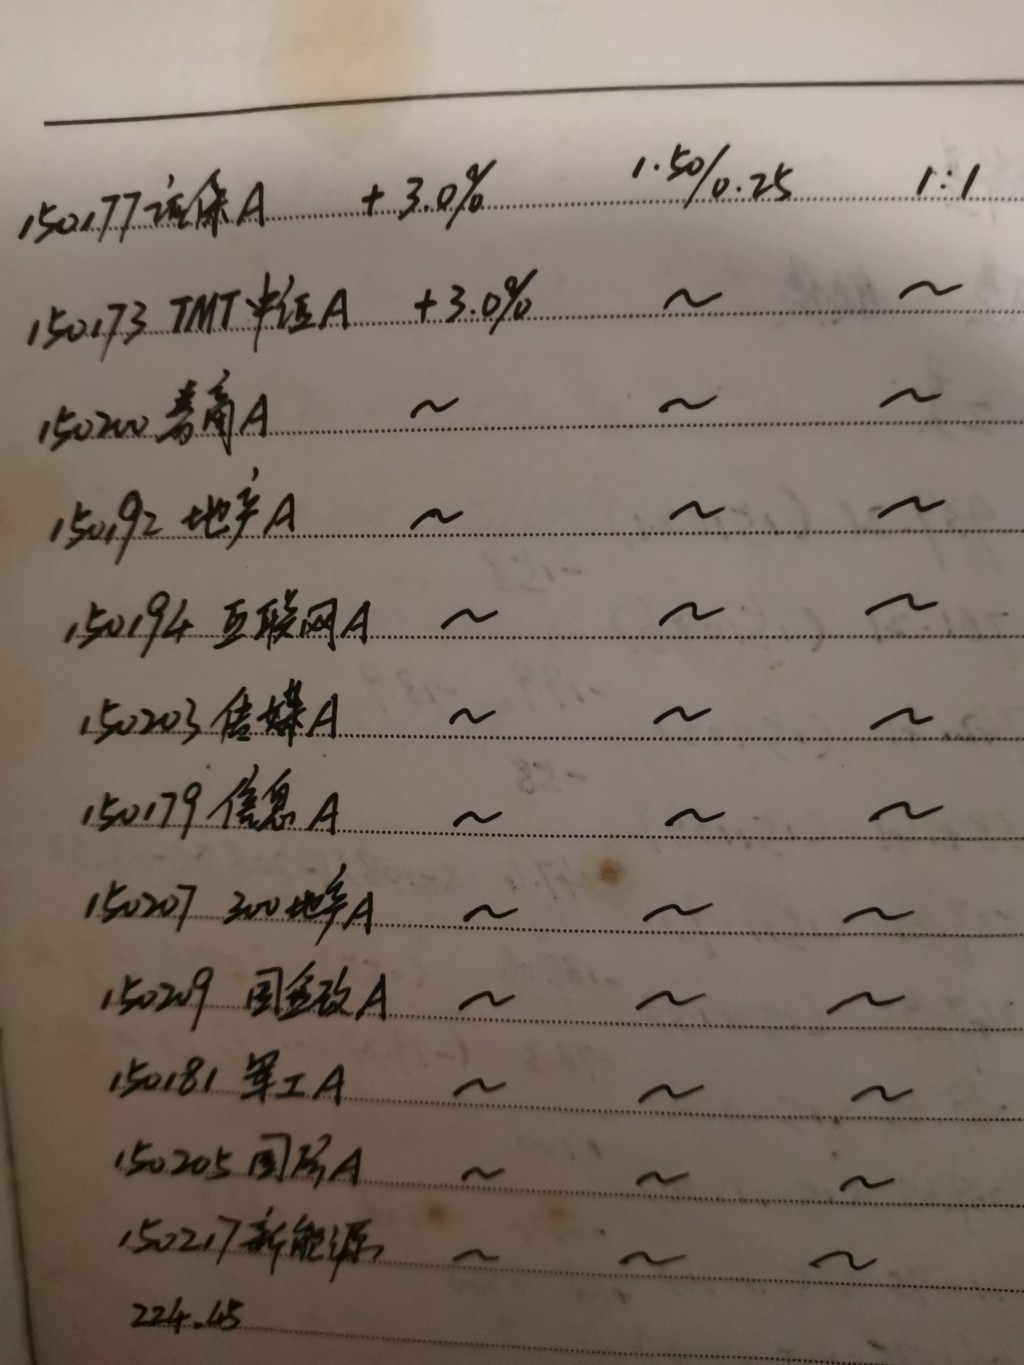 150177 证保A +3.0% 1.50/0.25 1:1
150173 TMT中证A +3.0% ~ ~
150200 券商A ~ ~ ~
150192 地产A ~ ~ ~
150194 互联网A ~ ~ ~
150203 传媒A ~ ~ ~
150179 信息A ~ ~ ~
150207 300地产A ~ ~ ~
150209 国企改A ~ ~ ~
150181 军工A ~ ~ ~
150205 国防A ~ ~ ~
150217 新能源 ~ ~ ~
224.45